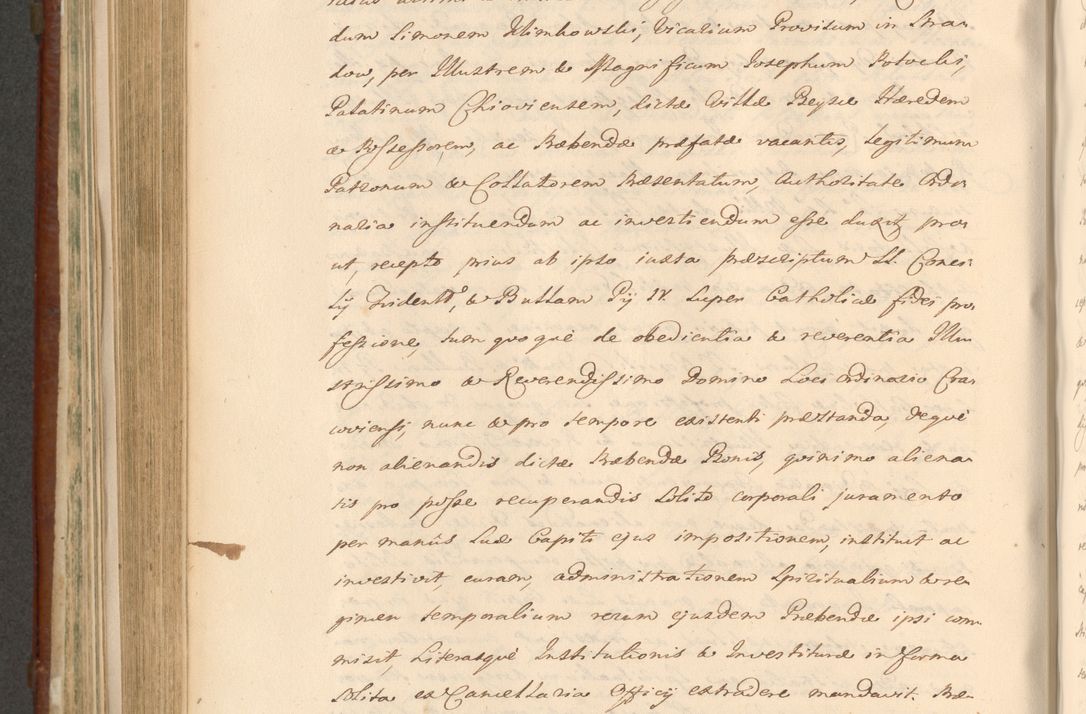 dum Simonem Klimkowski, Vicarium Provisum in Stra-
dow, per Illustrem & Magnificum Josephum Potocki,
Palatinum Chioviensem, dictæ Villæ Beysce Hæredem
& Possessorem, ac Præbendæ præfatæ vacantis, legitimum
Patronum & Collatorem Præsentatum, Authoritate Ordi-
naria instituendum ac investiendum esse duxit pro-
ut, recepto prius ab ipso iuxta præscriptum S. Conci-
lij Tridentt, & Bullam Pij IV. super Catholicæ fidei pro-
fessione, tum quoquè de obedientia & reverentia Illu-
strissimo & Reverendissimo Domino Loci Ordinario Cra-
coviensi, nunc & pro tempore existenti præstanda, dequè
non alienandis dictæ Præbendæ Bonis, quinimo aliena-
tis pro posse recuperandis solito corporali juramento
per manûs suæ Capiti ejus impositionem, instituit ac
investivit, curam, administrationem spiritualium & re-
gimen temporalium rerum ejusdem Præbendæ ipsi com-
misit, Literasquè Institutionis & Investituræ in forma
solita ex Cancellaria Officij extradere mandavit. Præ-